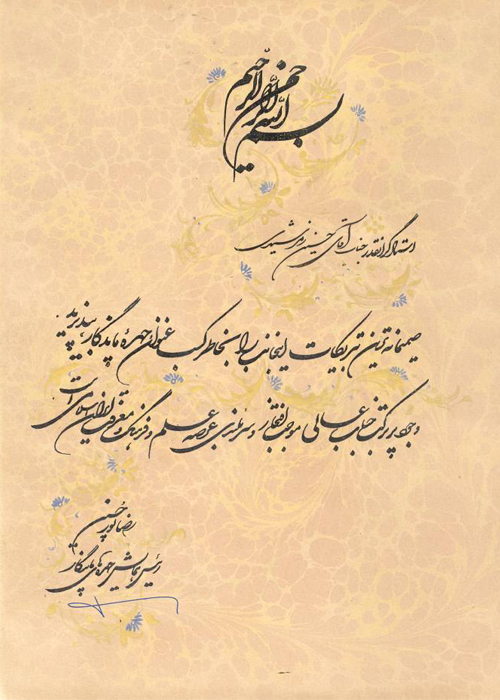 بسم الله الرحمن الرحیم
استاد گرانقدر جناب آقای حسین
صمیمانه ترین تبریکات اینجانب را بخاطر کسب عنوان چهره ماندگار بپذیرید
وجود پر برکت جنابعالی موجب افتخار و سربلندی عرصه علم و فرهنگ و معرفت ایران اسلامی است
حسن
رئیس همایش چهره های ماندگار